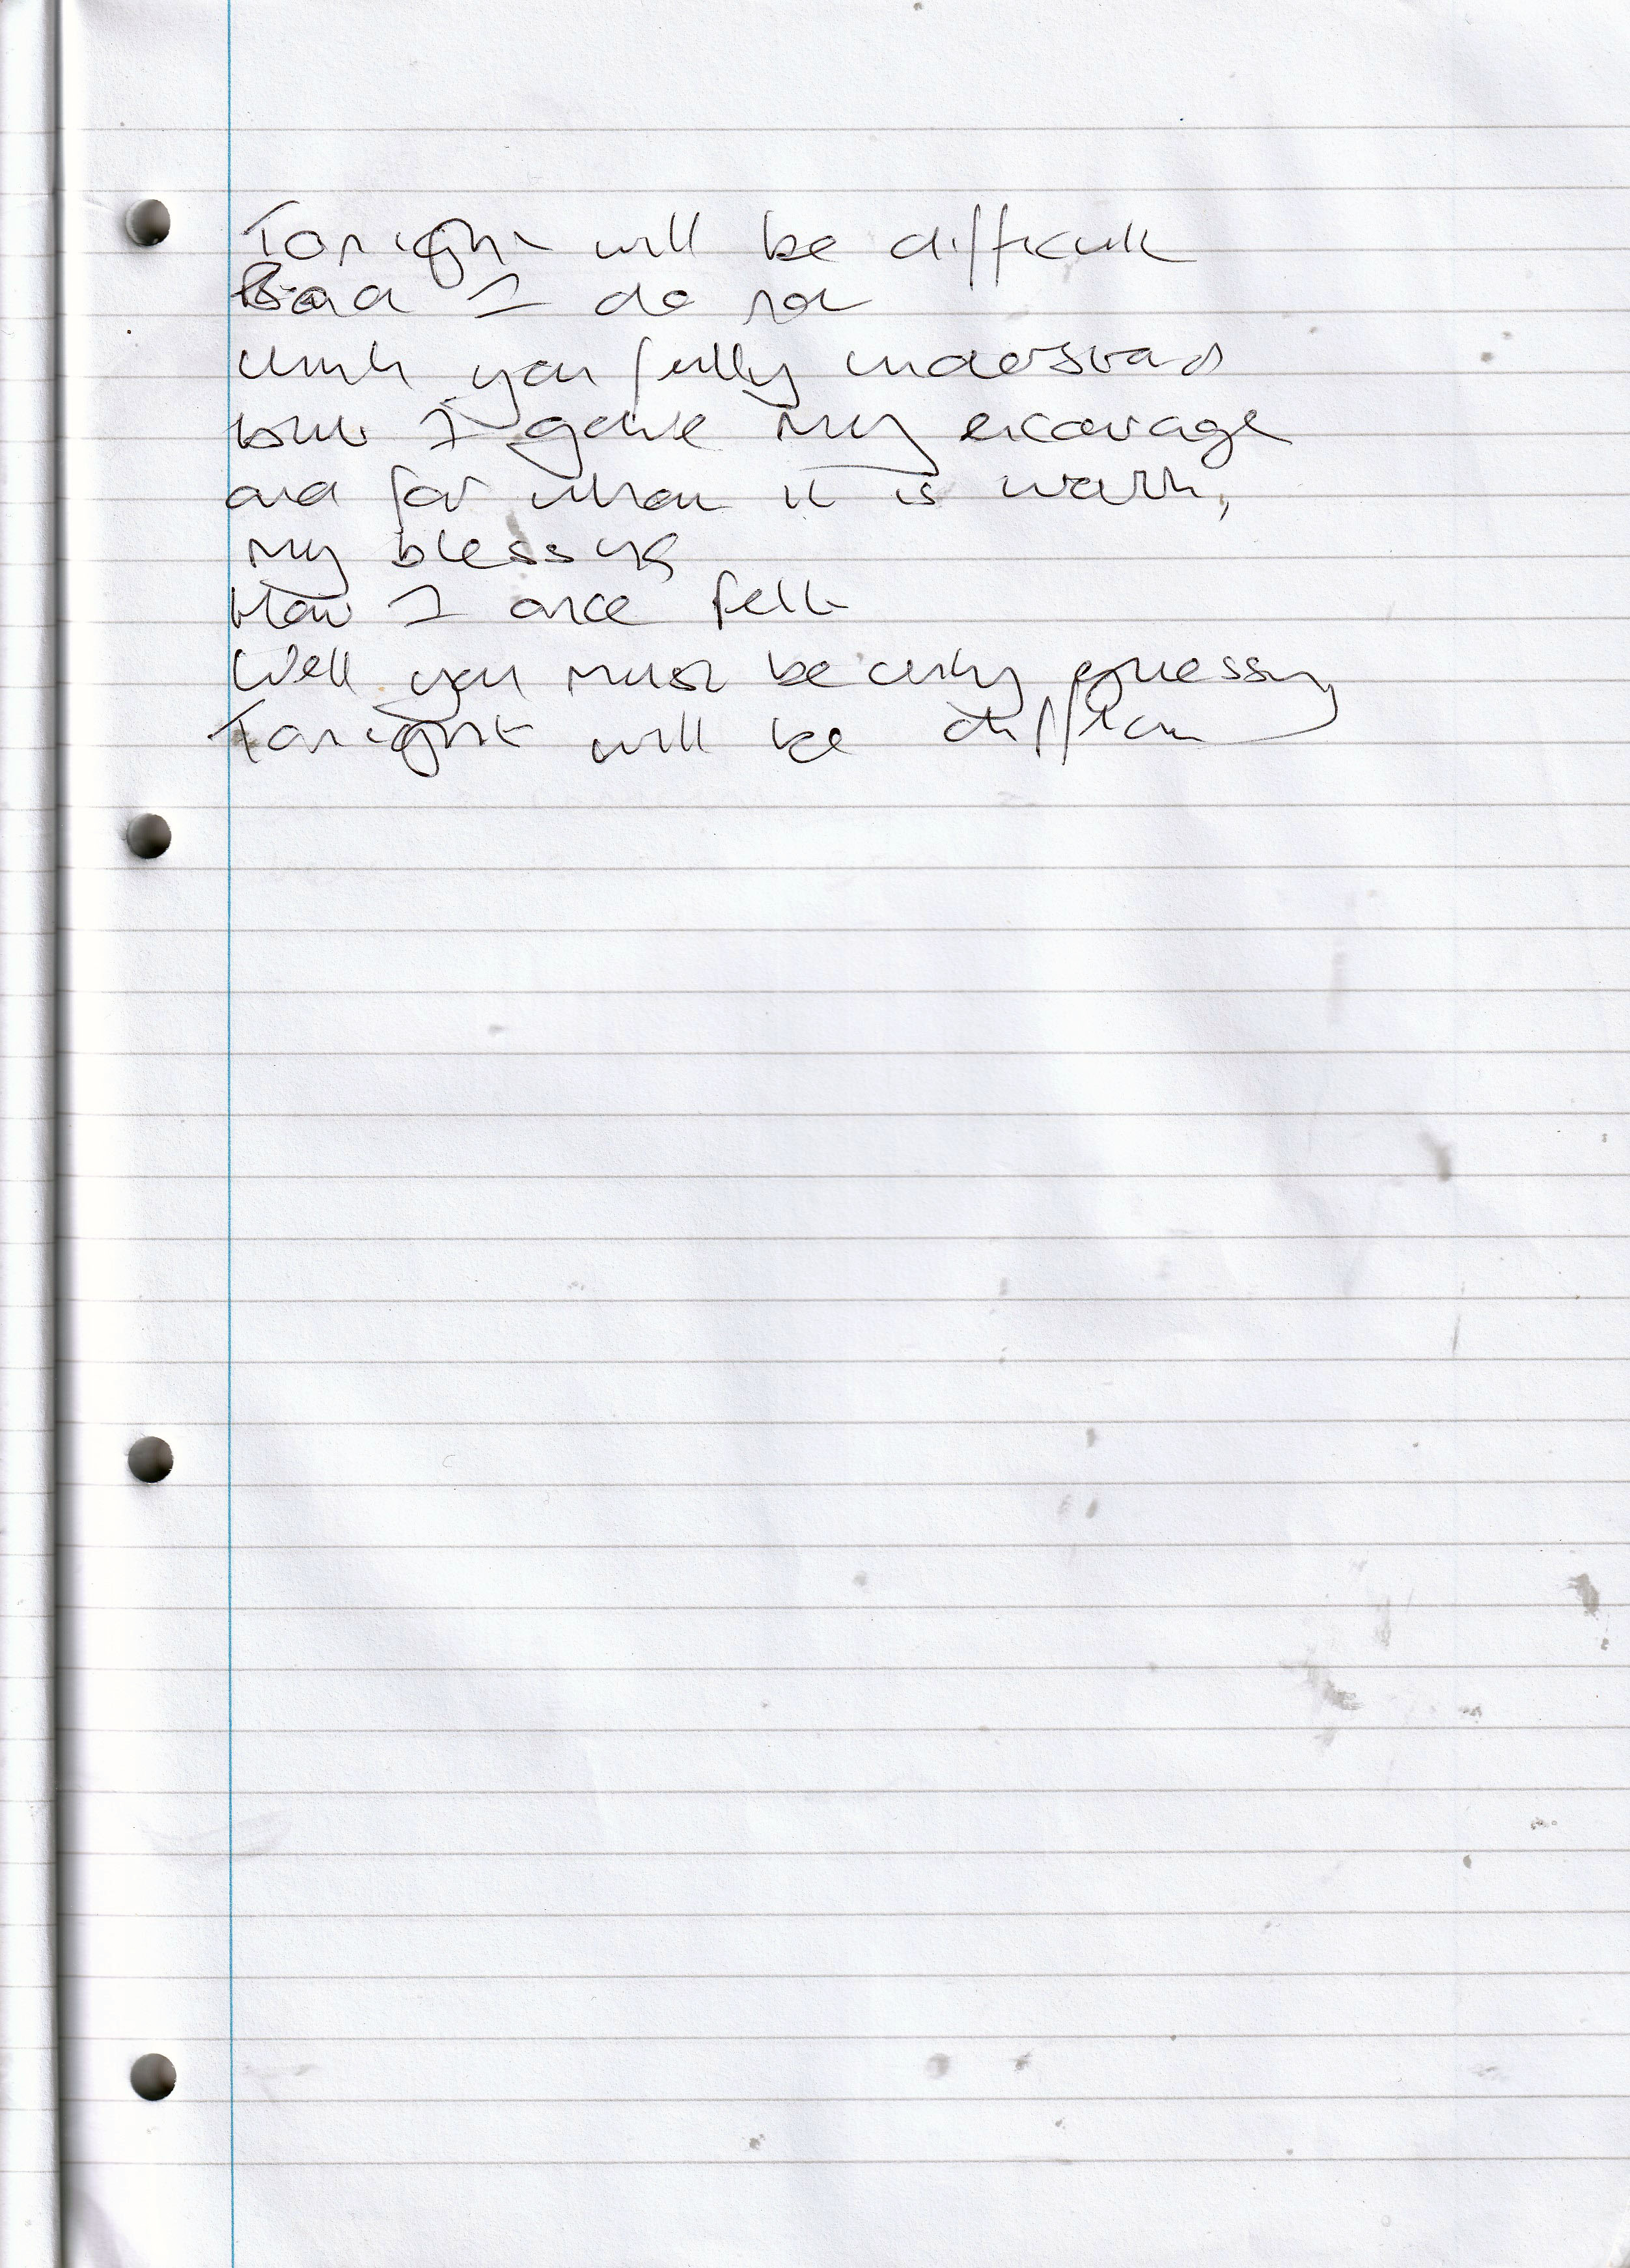 Tonight will be difficult
And I do not
think you fully understand
but I gave my encourage
and for what it is worth,
my blessing
How I once felt
Well you must be only guessing
Tonight will be difficult